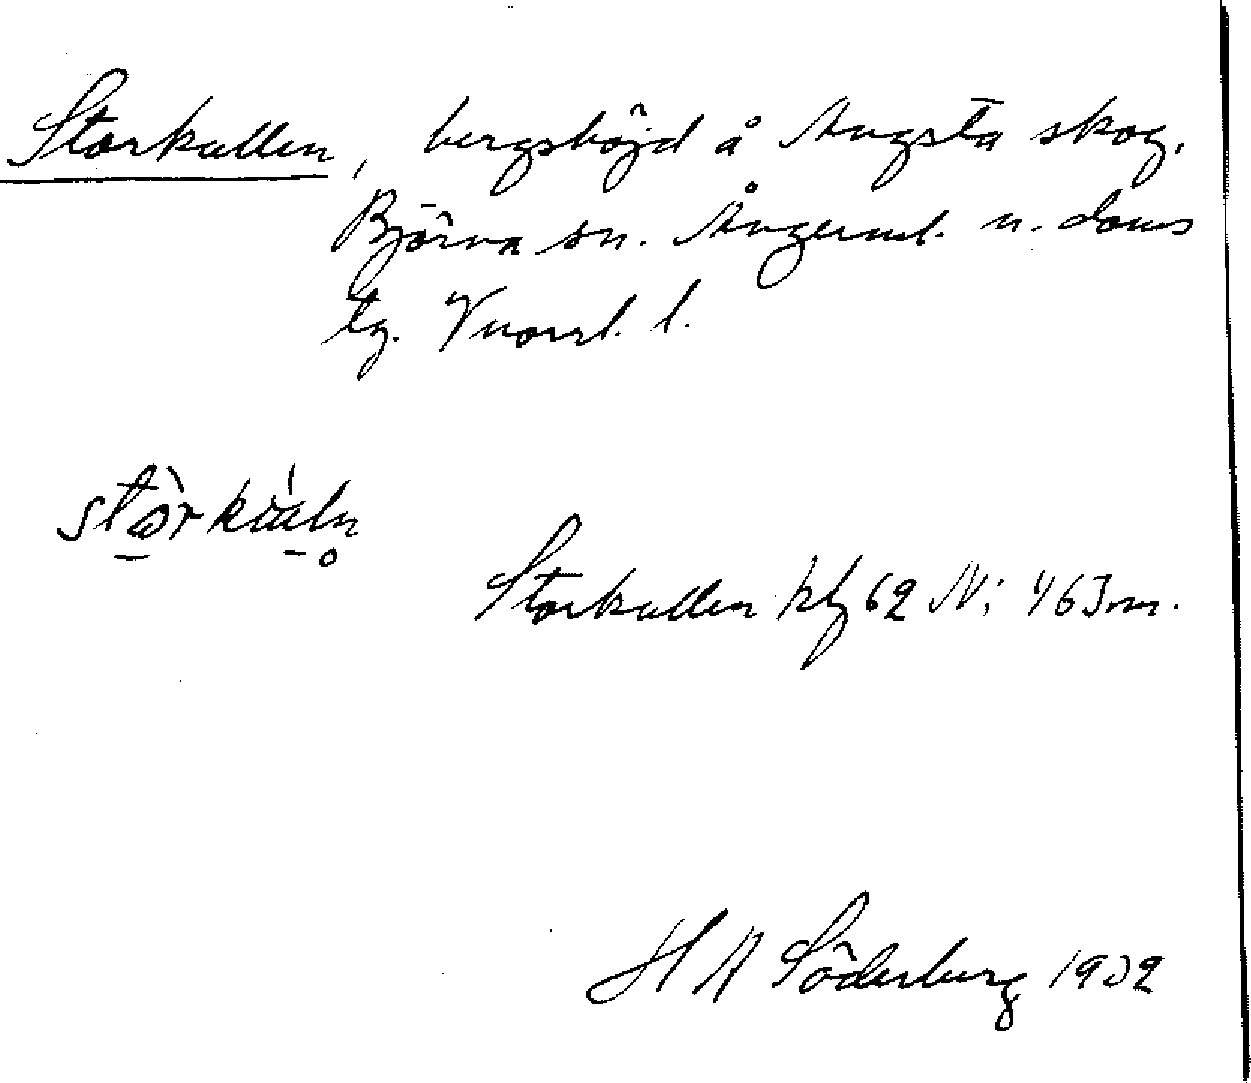 Storkullen, bergshöjd å Angsta skog.
Björna sn. Ångerml. n. doms
tg. V norrl. l.
Storkullen hbl 62 N; 463 m.
H A Söderberg 1932